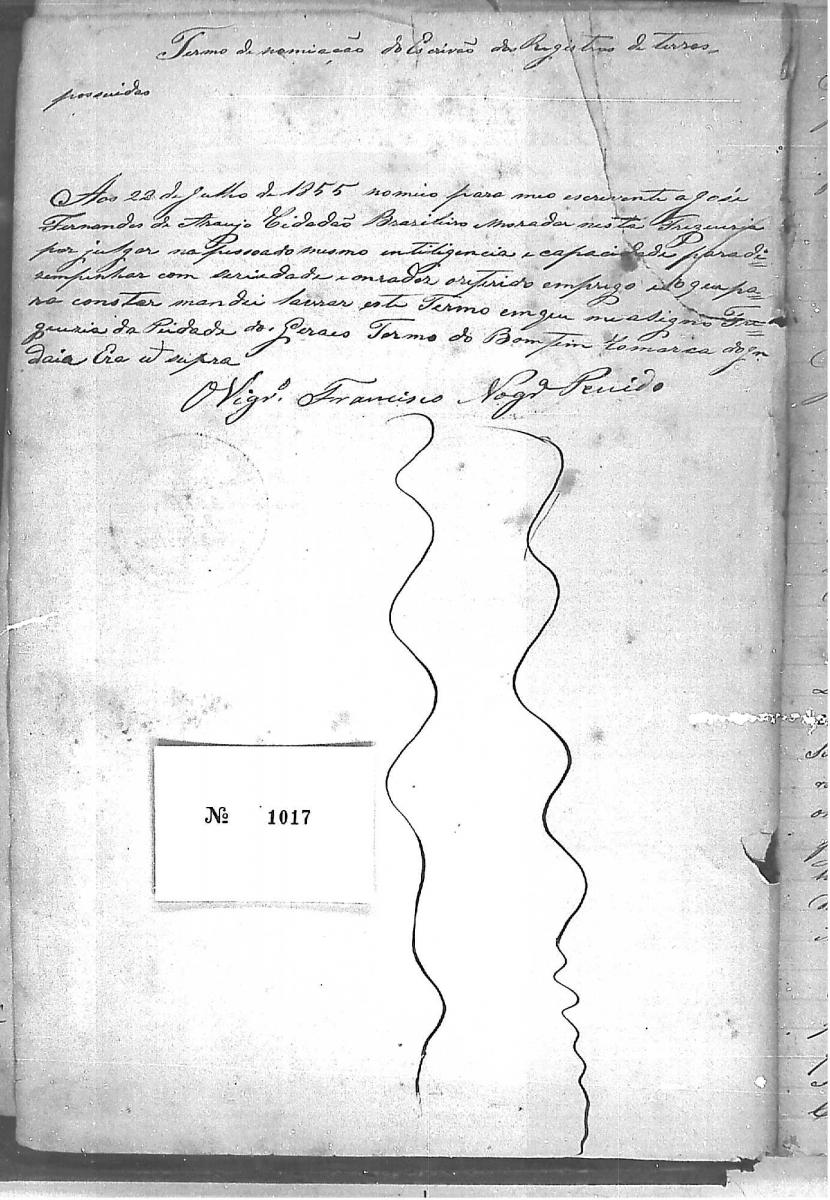 Termo de nomiação do Escrivão dos Registros de terras
possuidas
Aos 22 de Julho de 1855 nomeio para meo escrevente a José
Fernandes de Araujo Cidadão Brazileiro Morador nesta Freguezia
por julgar na Pessoa do mesmo intiligencia e capacidade para di=
zempenhar com seriedade e onradez oreferido emprego e do que pa=
ra constar mandei lavrar este Termo em que me asigno Fre=
guezia da Piedade dos Geraes Termo do Bomfim Comarca do
Era ut supra
O Vigr.o Francisco Nogr.a Penido
No 1017